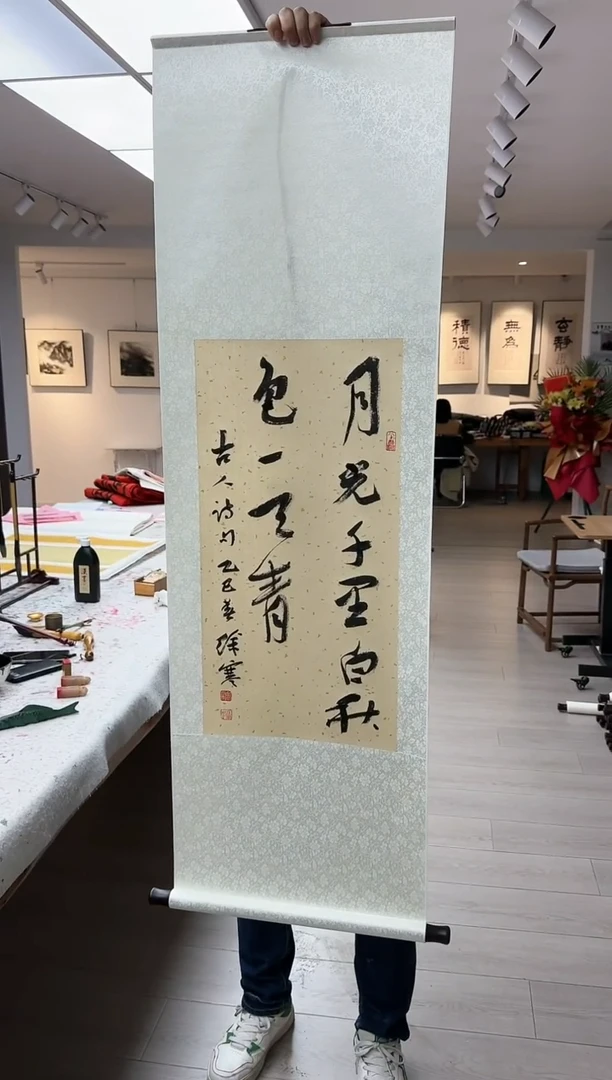 月光千里白秋
色一天青
古人诗句乙巳春 徐寒
積德
無為
玄靜